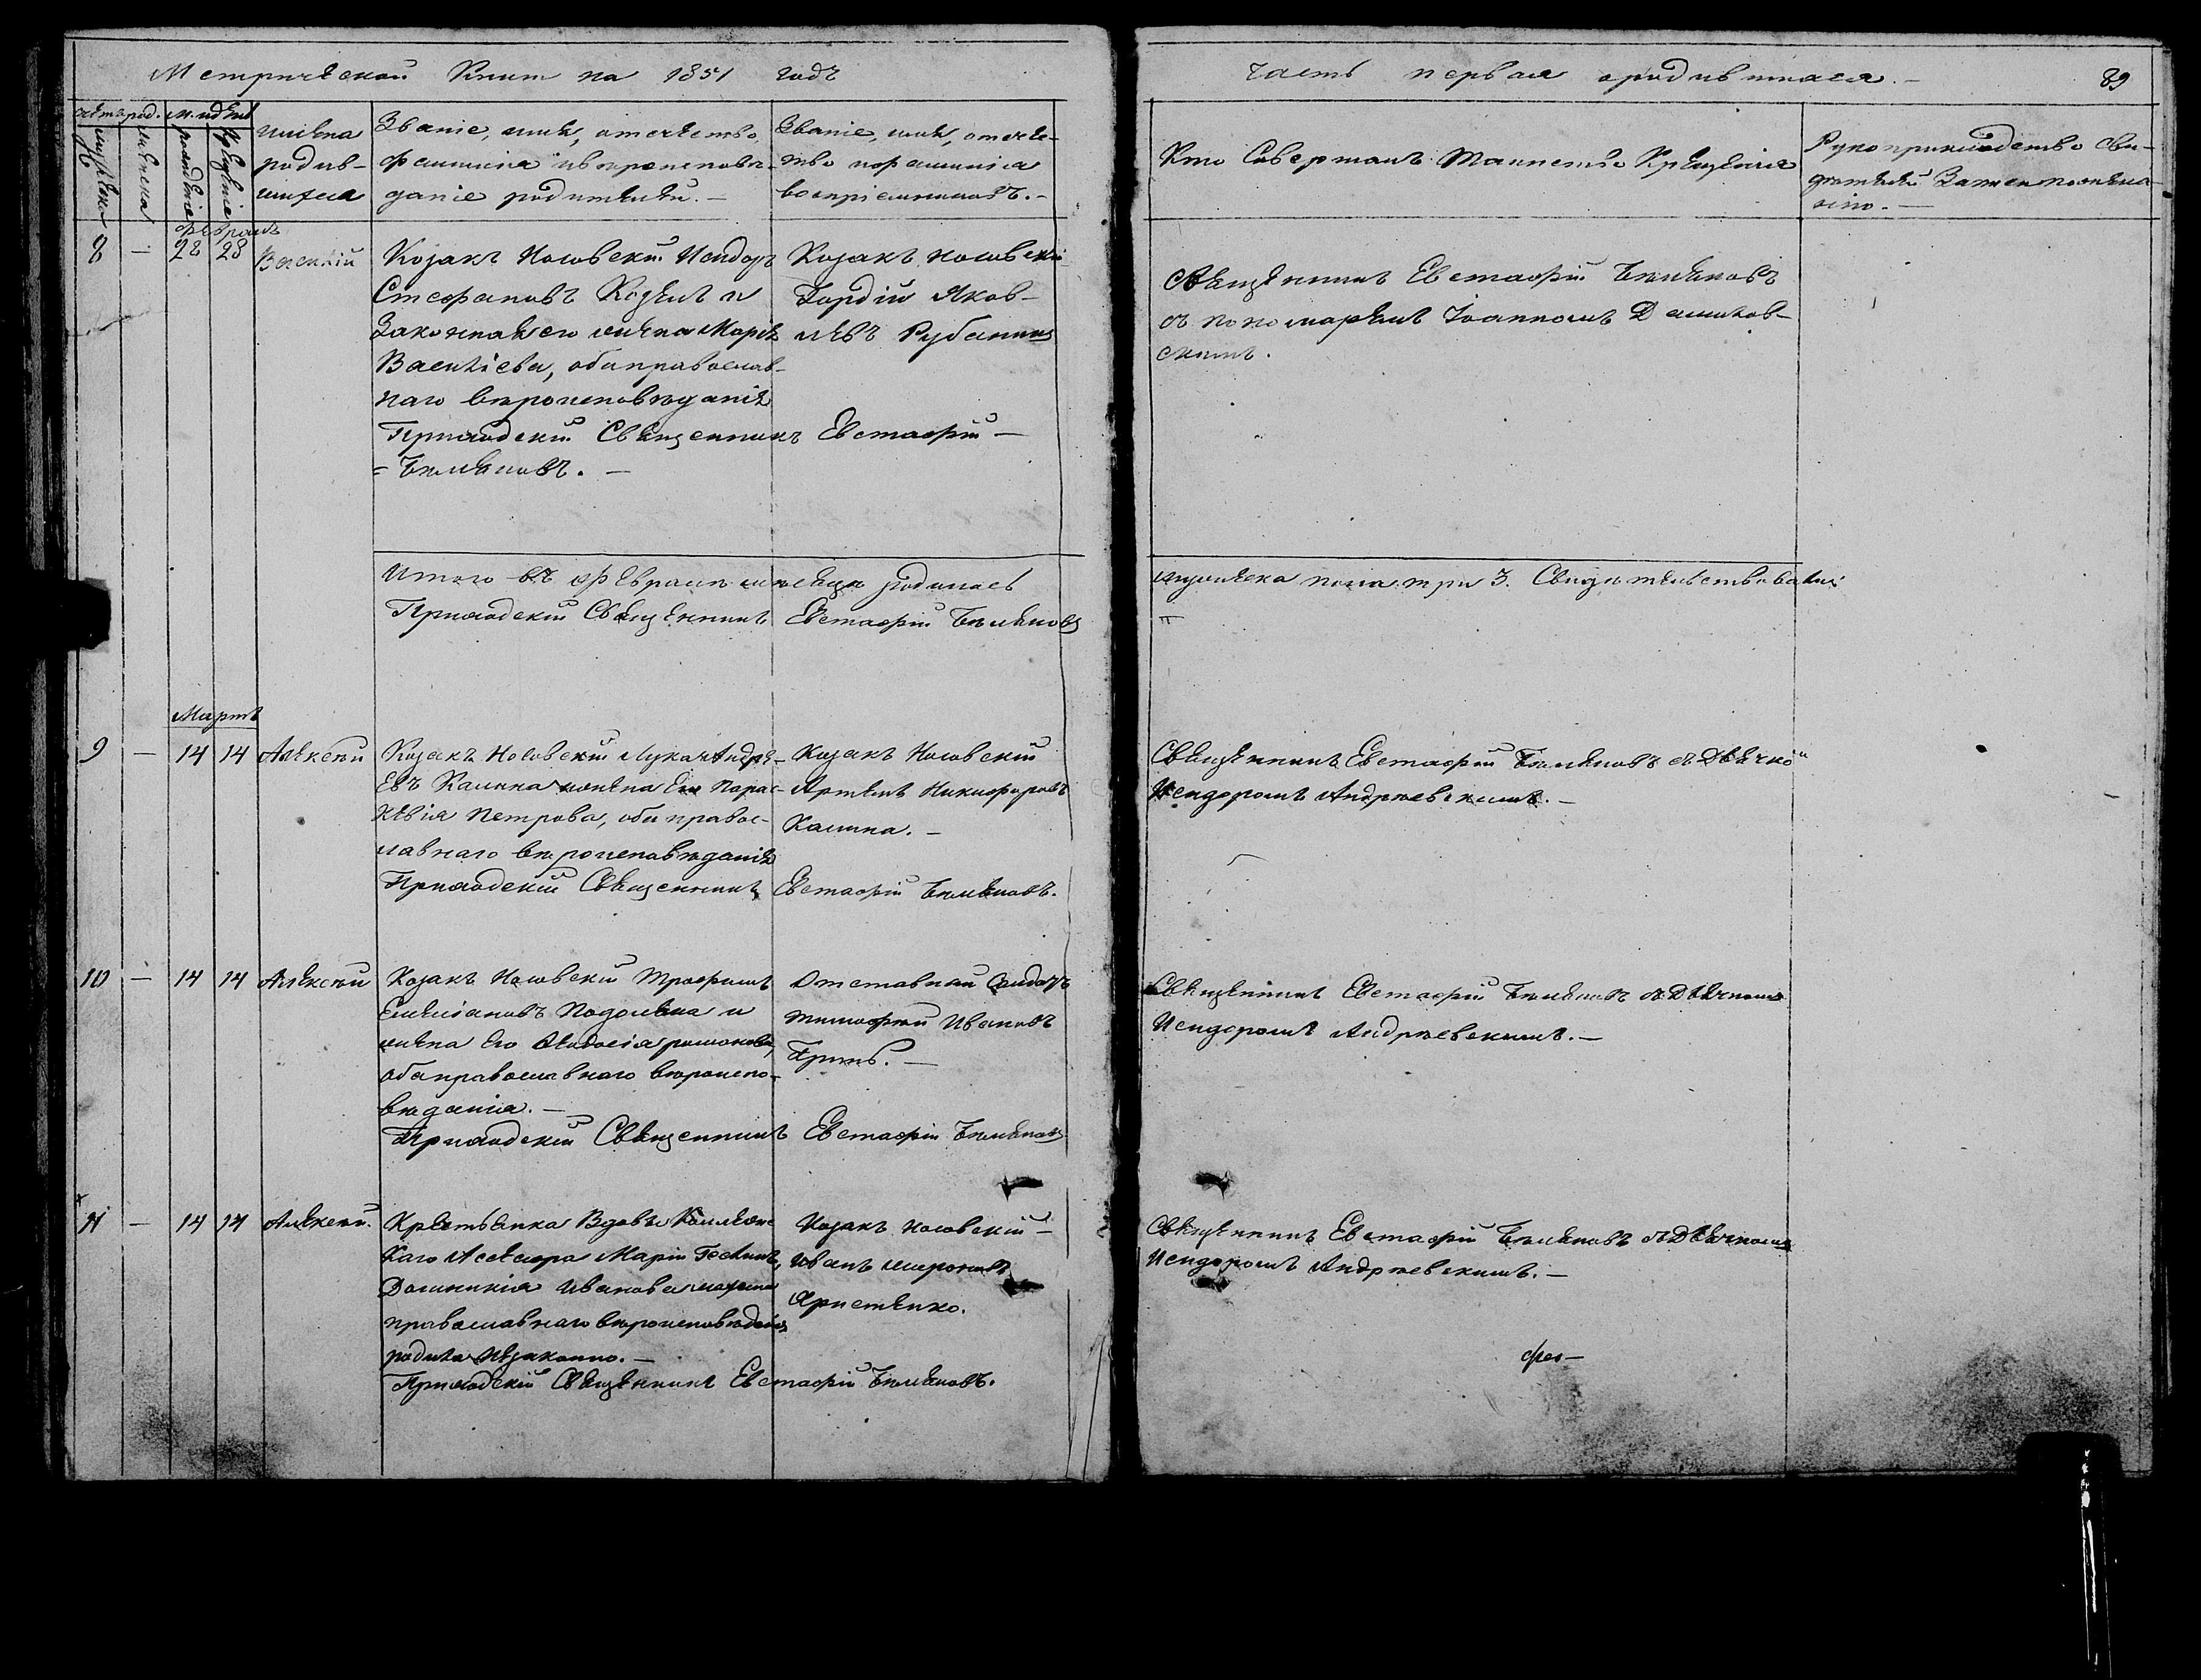 Метрической Книги на 1851 годъ
часть первая о родившихся.
89
счетъ род.
м. и день
мужеска
женска
рожденіе
Крещеніе
имена родив-
шихся
Званіе, имя, отечество,
фамилія и вѣроисповѣ-
даніе родителей. —
Званіе, имя, отече-
тво и фамилія
воспріемниковъ. —
Кто Совершалъ Таинство Крещенія
Рукоприкладство сви-
дѣтелей
февраль
8 — 28 28 Василій
Козакъ Носовскій Исидоръ
Стефановъ Козелъ и
Законная его жена Марія
Василіева, оба православ-
наго вѣроисповѣданія
Приходскій Священникъ Евстафій —
= Бѣляновъ. —
Козакъ Носовскій
Гордій Яков-
левъ Рубанъ
Священникъ Евстафій Бѣляновъ
съ пономаремъ Іоанномъ Дашков-
скимъ.
Итого въ февралѣ мѣсяцѣ родилось
мужеска пола три 3. Свидѣтельствовали:
Приходскій Священникъ Евстафій Бѣляновъ
Мартъ
9 — 14 14 Алексѣй
Козакъ Носовскій Лука Андре-
евъ Калина жена Его Парас-
кевія Петрова, оба правос-
лавнаго вѣроисповѣданія
Приходскій Священникъ Евстафій Бѣляновъ.
Козакъ Носовскій
Артемъ Никифоровъ
Калина. —
Священникъ Евстафій Бѣляновъ съ Дьячко
Исидоромъ Андрѣевскимъ. —
10 — 14 14 Алексѣй
Козакъ Носовскій Трофимъ
Емеліановъ Подоляка и
жена Его Ѳеодосія
оба православнаго вѣроиспо-
вѣданія. —
Приходскій Священникъ Евстафій Бѣляновъ
Отставный Солдатъ
Тимофѣй Ивановъ
Священникъ Евстафій Бѣляновъ съ Дьячкомъ
Исидоромъ Андрѣевскимъ. —
11 — 14 14 Алексѣй.
Крестьянка Вдовы Коллежс
каго Асесора Маріи
Домникія Иванова
православнаго вѣроисповѣданія
родила незаконно. —
Приходскій Священникъ Евстафій Бѣляновъ.
Козакъ Носовскій —
Иванъ Мироновъ
Христенко.
Священникъ Евстафій Бѣляновъ съ Дьячкомъ
Исидоромъ Андрѣевскимъ. —